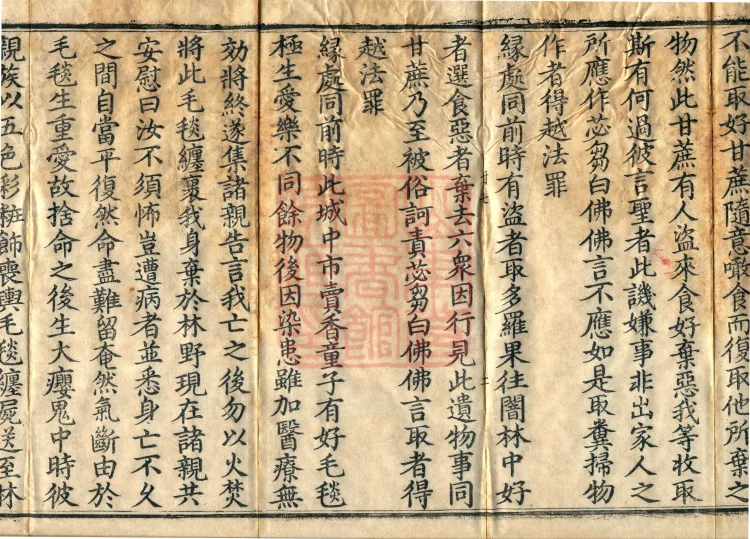 不能取好甘蔗隨意噉食而復取他所棄之
物然此甘蔗有人盜來食好棄惡我等收取
斯有何過彼言聖者此譏嫌事非出家人之
所應作苾芻白佛佛言不應如是取糞掃物
作者得越法罪
緣處同前時有盜者取多羅果往闇林中好
者選食惡者棄去六衆因行見此遺物事同
甘蔗乃至被俗訶責苾芻白佛佛言取者得
越法罪
緣處同前時此城中市賣香童子有好毛毯
極生愛樂不同餘物後因染患雖加醫療無
効將終遂集諸親告言我亡之後勿以火焚
將此毛毯纏裹我身棄於林野現在諸親共
安慰曰汝不須怖豈遭病者並悉身亡不久
之間自當平復然命盡難留奄然氣斷由於
毛毯生重愛故捨命之後生大癭鬼中時彼
親族以五色彩粧飾喪輿毛毯纏屍送至林